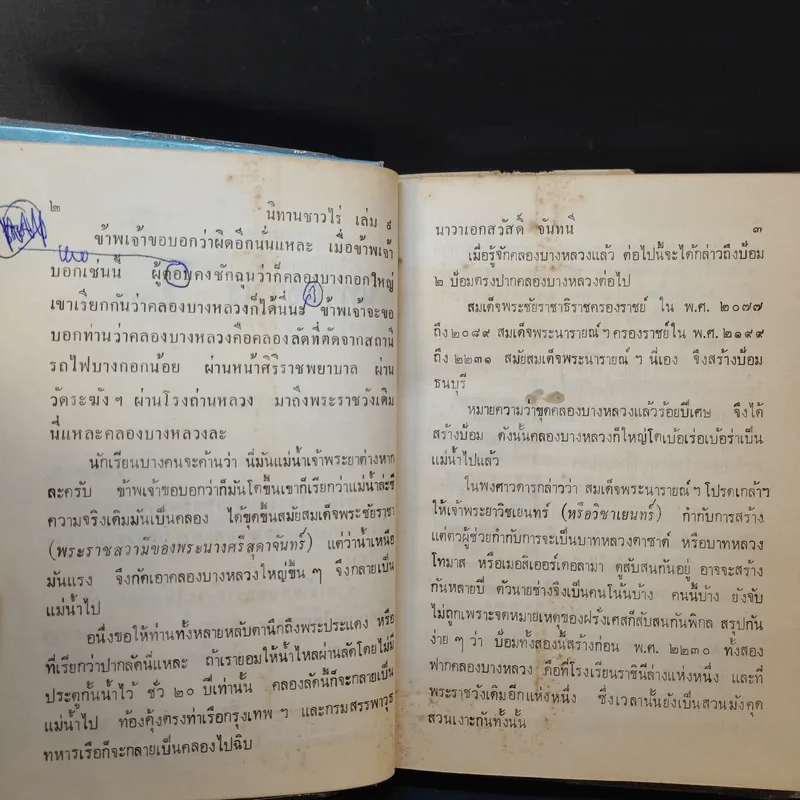 ๒
นิทานชาวไร่ เล่ม ๙
ข้าพเจ้าขอบอกว่าผิดอีกนั่นแหละ เมื่อข้าพเจ้า
บอกเช่นนี้ ผู้ตอบคงชักฉุนว่าก็คลองบางกอกใหญ่
เขาเรียกกันว่าคลองบางหลวงก็ได้นี่นะ ข้าพเจ้าจะขอ
บอกท่านว่าคลองบางหลวงคือคลองลัดที่ตัดจากสถานี
รถไฟบางกอกน้อย ผ่านหน้าศิริราชพยาบาล ผ่าน
วัดระฆังฯ ผ่านโรงถ่านหลวง มาถึงพระราชวังเดิม
นี่แหละคลองบางหลวงละ
นักเรียนบางคนจะค้านว่า นี่มันแม่น้ำเจ้าพระยาต่างหาก
ละครับ ข้าพเจ้าขอบอกว่าก็มันโตขึ้นเขาก็เรียกว่าแม่น้ำล่ะซี
ความจริงเดิมมันเป็นคลอง ได้ขุดขึ้นสมัยสมเด็จพระชัยราชา
(พระราชสวามีของพระนางศรีสุดาจันทร์) แต่ว่าน้ำเหนือ
มันแรง จึงกัดเอาคลองบางหลวงใหญ่ขึ้น ๆ จึงกลายเป็น
แม่น้ำไป
อนึ่งขอให้ท่านทั้งหลายหลับตานึกถึงพระประแดง หรือ
ที่เรียกว่าปากลัดนี่แหละ ถ้าเรายอมให้น้ำไหลผ่านลัดโดยไม่มี
ประตูกั้นน้ำไว้ ชั่ว ๒๐ ปีเท่านั้น คลองลัดนี้ก็จะกลายเป็น
แม่น้ำไป ท้องคุ้งตรงท่าเรือกรุงเทพ ฯ และกรมสรรพาวุธ
ทหารเรือก็จะกลายเป็นคลองไปฉิบ
นาวาเอกสวัสดิ์ จันทนี
๓
เมื่อรู้จักคลองบางหลวงแล้ว ต่อไปนี้จะได้กล่าวถึงป้อม
๒ ป้อมตรงปากคลองบางหลวงต่อไป
สมเด็จพระชัยราชาธิราชครองราชย์ ใน พ.ศ. ๒๐๗๗
ถึง ๒๐๘๙ สมเด็จพระนารายณ์ ฯ ครองราชย์ใน พ.ศ. ๒๑๙๙
ถึง ๒๒๓๑ สมัยสมเด็จพระนารายณ์ ฯ นี่เอง จึงสร้างป้อม
ธนบุรี
หมายความว่าขุดคลองบางหลวงแล้วร้อยปีเศษ จึงได้
สร้างป้อม ดังนั้นคลองบางหลวงก็ใหญ่โตเบ้อเร่อเบ้อร่าเป็น
แม่น้ำไปแล้ว
ในพงศาวดารกล่าวว่า สมเด็จพระนารายณ์ ฯ โปรดเกล้าฯ
ให้เจ้าพระยาวิชเยนทร์ (หรือวิชาเยนทร์) กำกับการสร้าง
แต่ตัวผู้ช่วยกำกับการจะเป็นบาทหลวงตาซาด์ หรือบาทหลวง
โทมาส หรือเมอสิเออร์เดอลามา ดูสับสนกันอยู่ อาจจะสร้าง
กันหลายปี ตัวนายช่างจึงเป็นคนโน้นบ้าง คนนี้บ้าง ยังจับ
ไม่ถูกเพราะจดหมายเหตุของฝรั่งเศสก็สับสนกันพิกล สรุปกัน
ง่าย ๆ ว่า ป้อมทั้งสองนี้สร้างก่อน พ.ศ. ๒๒๓๐ ทั้งสอง
ฟากคลองบางหลวง คือที่โรงเรียนราชินีล่างแห่งหนึ่ง และที่
พระราชวังเดิมอีกแห่งหนึ่ง ซึ่งเวลานั้นยังเป็นสวนมังคุด
สวนเงาะกันทั้งนั้น